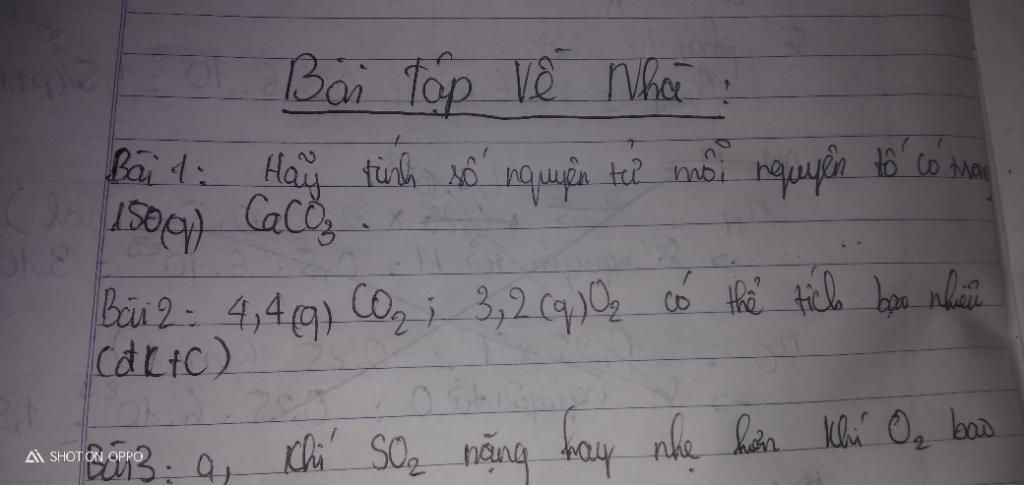 Bài Tập Về Nhà:
Bài 1: Hãy tính số nguyên tử mỗi nguyên tố có trong
150(g) CaCO3.
Bài 2: 4,4(g) CO2; 3,2(g) O2 có thể tích bao nhiêu
(đktc)
Bài 3: a, Khí SO2 nặng hay nhẹ hơn khí O2 bao
SHOT ON OPPO